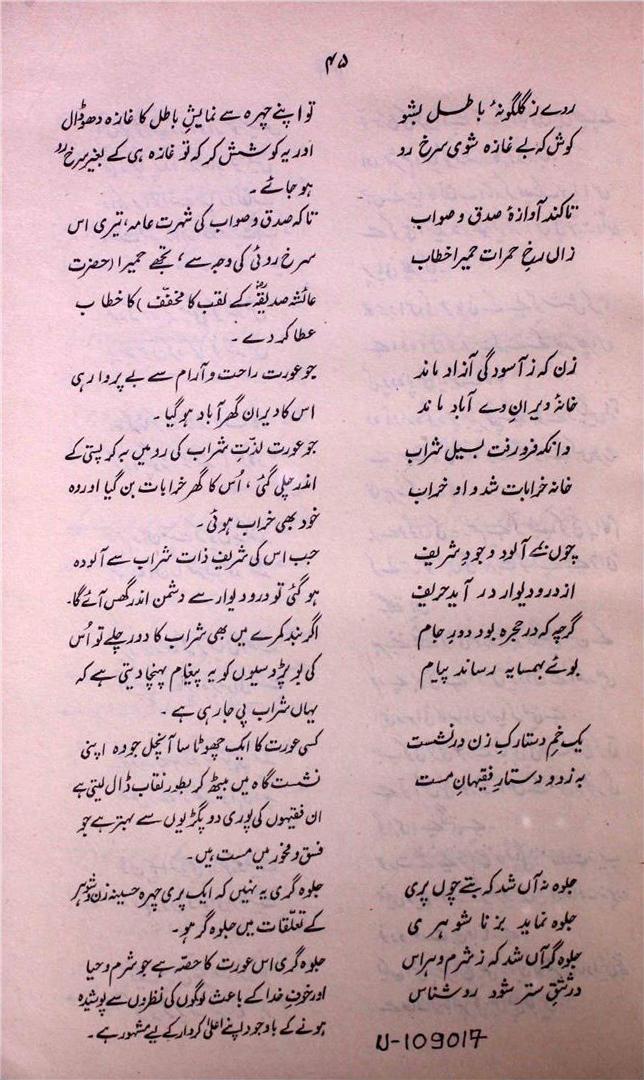 ۴۵
روے ز گلگونۂ باطل بشو
کوش کہ بے غازہ شوی سرخ رو
تو اپنے چہرہ سے نمایشِ باطل کا غازہ دھو ڈال
اور یہ کوشش کر کہ تو غازہ ہی کے بغیر سرخ رو
ہو جائے۔
تا کند آوازۂ صدق و صواب
زاں رخِ حمرات حمیرا خطاب
تاکہ صدق و صواب کی شہرت عامہ، تیری اس
سرخ روئی کی وجہ سے، تجھے حمیرا (حضرت
عائشہ صدیقہؓ کے لقب کا مخفّف) کا خطاب
عطا کر دے۔
زن کہ ز آسودگی آزاد ماند
خانۂ ویرانِ وے آباد ماند
جو عورت راحت و آرام سے بے پروا رہی
اس کا ویران گھر آباد ہو گیا۔
وانکہ فرو رفت بسیلِ شراب
خانہ خرابات شد و او خراب
جو عورت لذّتِ شراب کی رو میں بہ کر پستی کے
اندر چلی گئی، اُس کا گھر خرابات بن گیا اور وہ
خود بھی خراب ہوئی۔
چوں بمئے آلود وجودِ شریف
از در و دیوار در آید حریف
جب اس کی شریف ذات شراب سے آلودہ
ہو گئی تو در و دیوار سے دشمن اندر گھس آئے گا۔
گرچہ کہ در حجرہ بود دورِ جام
بوئے بہمسایہ رساند پیام
اگر بند کمرے میں بھی شراب کا دور چلے تو اُس
کی بو پڑوسیوں کو یہ پیغام پہنچا دیتی ہے کہ
یہاں شراب پی جا رہی ہے۔
یک خمِ دستارک زن در نشست
بہ ز دو دستارِ فقیہانِ مست
کسی عورت کا ایک چھوٹا سا آنچل جو وہ اپنی
نشست گاہ میں بیٹھ کر بطور نقاب ڈال لیتی ہے
ان فقیہوں کی پوری دو پگڑیوں سے بہتر ہے جو
فسق و فجور میں مست ہیں۔
جلوہ نہ آں شد کہ بتے چوں پری
جلوہ نماید بزناشوہری
جلوہ گری یہ نہیں کہ ایک پری چہرہ حسینہ زن و شوہر
کے تعلّقات میں جلوہ گر ہو۔
جلوہ گر آں شد کہ ز شرم و ہراس
در تتقِ ستر شود روشناس
جلوہ گری اس عورت کا حصّہ ہے جو شرم و حیا
اور خوفِ خدا کے باعث لوگوں کی نظروں سے پوشیدہ
ہونے کے باوجود اپنے اعلیٰ کردار کے لیے مشہور ہے۔
U-109017